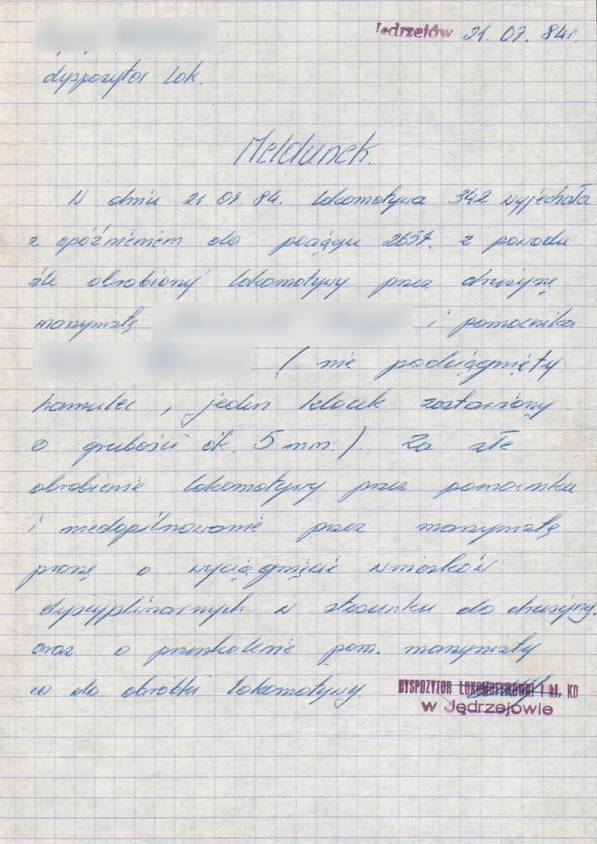 Jędrzejów 21.09.84r.
dyspozytor lok.
Meldunek.
W dniu 21 09 84. lokomotywa 342 wyjechała
z opóźnieniem do pociągu 2657. z powodu
źle obrobionej lokomotywy przez drużynę
maszynistę i pomocnika
( nie podciągnięty
hamulec, jeden klocek zostawiony
o grubości ok. 5 mm.). Za złe
obrobienie lokomotywy przez pomocnika
i niedopilnowanie przez maszynistę
proszę o wyciągnięcie wniosków
dyscyplinarnych w stosunku do drużyny.
oraz o przeszkolenie pom. maszynisty
co do obróbki lokomotywy
DYSPOZYTOR LOKOMOTYWOWNI I kl. KD
w Jędrzejowie